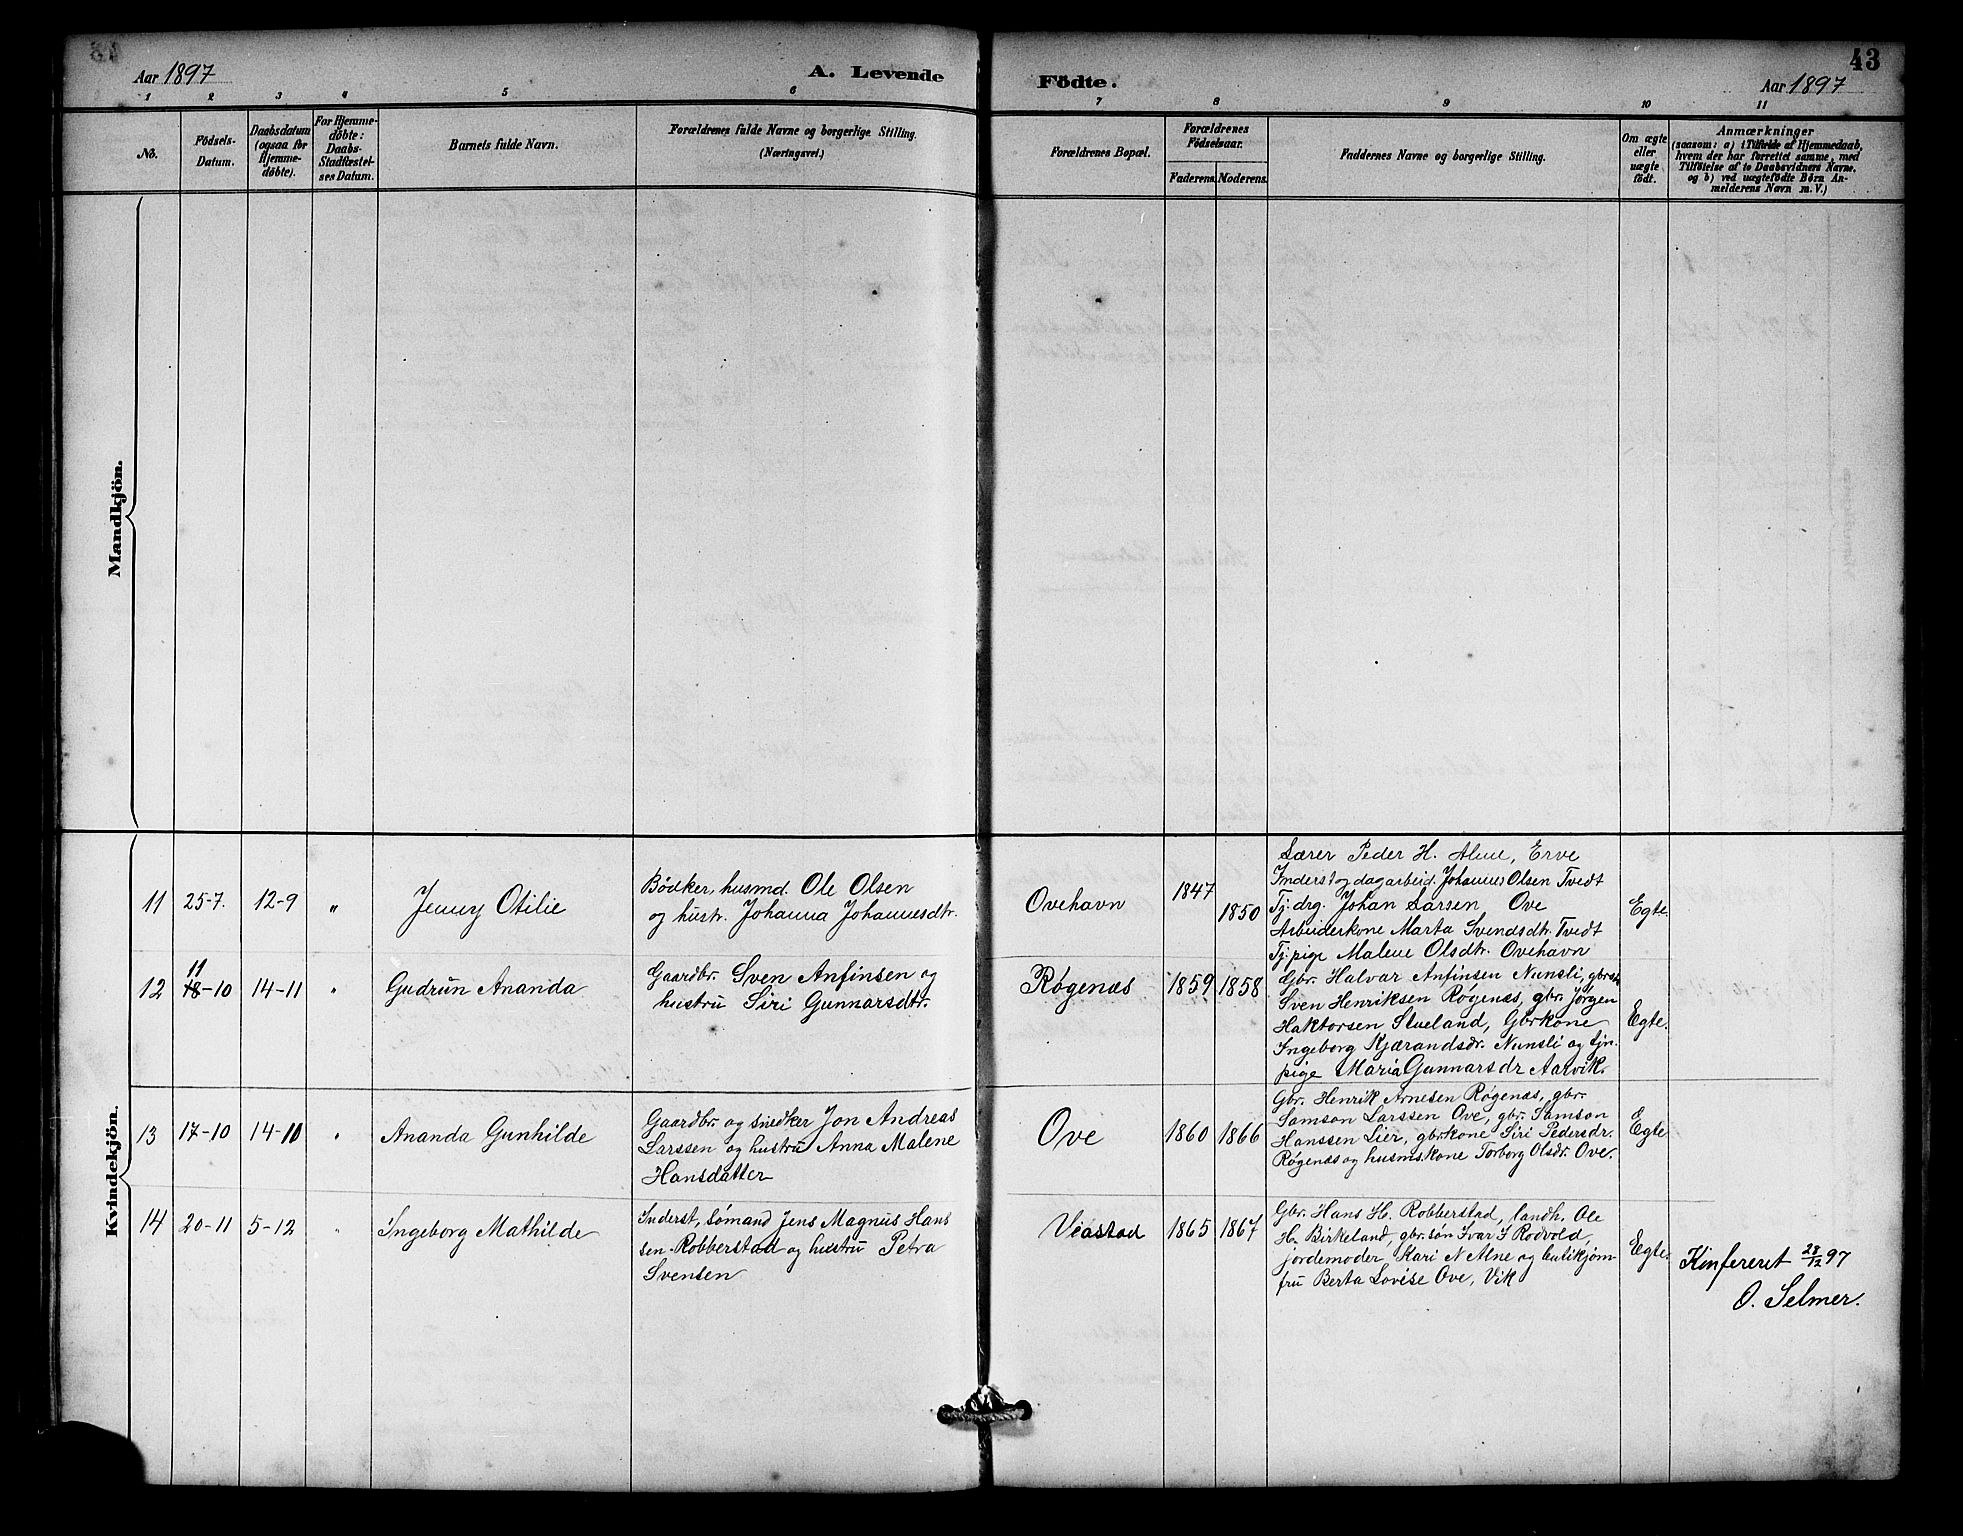 43
Aar 1897
A. Levende Födte.
Aar 1897
1 2 3 4 5 6 7 8 9 10 11
No.
Födsels-Datum.
Daabsdatum (ogsaa for Hjemme-döbte).
For Hjemme-döbte: Daabs-Stadfæstel-ses Datum.
Barnets fulde Navn.
Forældrenes fulde Navne og borgerlige Stilling.
(Næringsvei.)
Forældrenes Bopæl.
Forældrenes Födselsaar.
Faderens. Moderens.
Faddernes Navne og borgerlige Stilling.
Om ægte eller uægte födt.
Anmærkninger
(saasom: a) i Tilfælde af Hjemmedaab,
hvem der har forrettet samme, med
Tilföielse af to Daabsvidners Navne.
og b) ved uægtefödte Börn An-
melderens Navn m. V.)
Mandkjön.
Kvindekjön.
11 25-7. 12-9 " Jenny Otilie
Bödker, husmd. Ole Olsen
og hustr. Johanna Johannesdtr.
Ovehavn 1847 1850
Lærer Peder H. Alne, Erve
Inderst og dagarbeid. Johannes Olsen Tvedt
Tj. drg. Johan Larsen Ove
Arbeiderkone Marta Svendsdtr. Tvedt
Tj. pige Malene Olsdtr. Ovehavn
Egte.
12 11 18-10 14-11 " Gudrun Ananda
Gaardbr. Sven Anfinsen og
hustru Siri Gunnarsdtr.
Røgenæs 1859 1858
Gbr. Halvar Anfinsen Nunsli, gbrsøn
Sven Henriksen Røgenæs, gbr. Jørgen
Haktorsen Stueland, Gbrkone
Ingeborg Kjærandsdr. Nunsli og tjn.
pige Maria Gunnarsdr Aarvik.
Egte.
13 17-10 14-11 " Ananda Gunhilde
Gaardbr. og snedker Jon Andreas
Larssen og hustru Anna Malene
Hansdatter
Ove 1860 1866
Gbr. Henrik Arnesen Røgenæs, gbr.
Samson Larssen Ove, gbr. Samson
Hanssen Lier, gbrkone Siri Pedersdr.
Røgenæs og husmskone Torborg Olsdr. Ove.
Egte
14 20-11 5-12 " Ingeborg Mathilde
Inderst, sømand Jens Magnus Hans
sen Robberstad og hustru Petra
Svensen
Veastad 1865 1867
Gbr. Hans H. Robberstad, landh. Ole
H. Birkeland, gbr.søn Ivar I Rodvold,
jordemoder, Kari N Alne og butikjom-
fru Berta Lovise Ove, Vik
Egte.
Konfereret 28/12 97
O. Selmer.